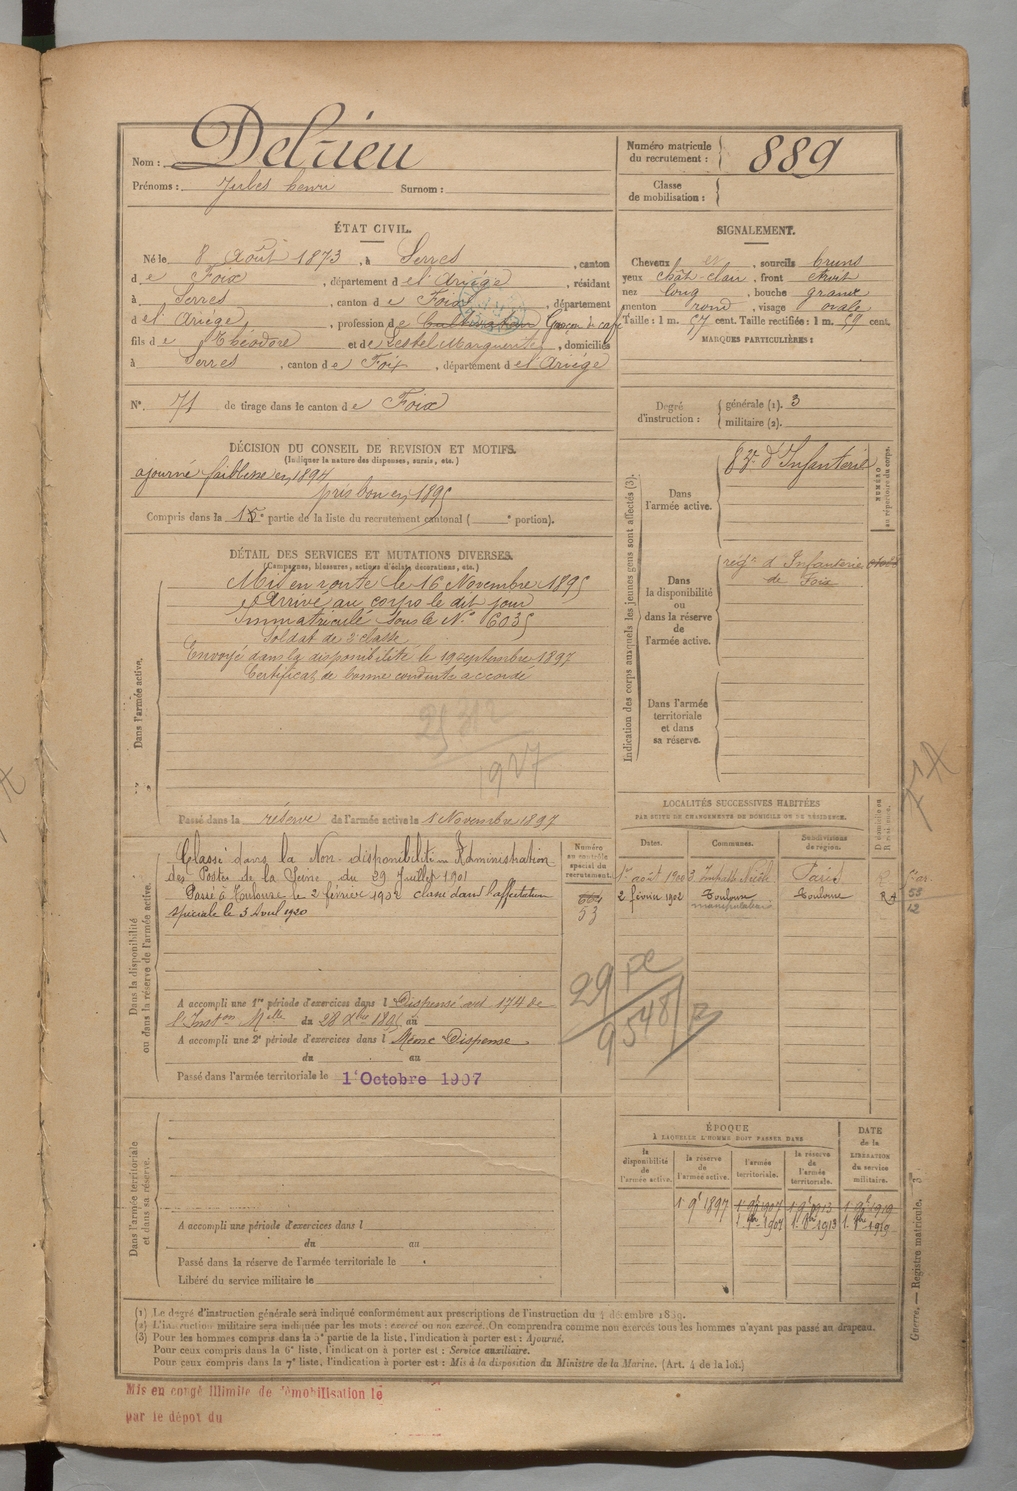 Nom : Delrieu
Prénoms : Jules henri Surnom :
Numéro matricule du recrutement : 889
Classe de mobilisation :
ÉTAT CIVIL.
Né le 8 Août 1873, à Serres, canton
de Foix, département de l'Ariège, résidant
à Serres, canton de Foix, département
de l'Ariège, profession de Cultivateur Garçon de café
fils de Théodore et de Lestel Marguerite, domiciliés
à Serres, canton de Foix, département de l'Ariège
N° 71 de tirage dans le canton de Foix
SIGNALEMENT.
Cheveux et, sourcils bruns
yeux chât-clair, front étroit
nez long, bouche grande
menton rond, visage ovale
Taille : 1 m. 57 cent. Taille rectifiée : 1 m. 59 cent.
MARQUES PARTICULIÈRES :
Degré d'instruction : générale (1). 3
militaire (2).
DÉCISION DU CONSEIL DE REVISION ET MOTIFS.
(Indiquer la nature des dispenses, sursis, etc.)
ajourné faiblesse en 1894
pris bon en 1895
Compris dans la 1e partie de la liste du recrutement cantonal ( e portion).
DÉTAIL DES SERVICES ET MUTATIONS DIVERSES.
(Campagnes, blessures, actions d'éclat, décorations, etc.)
Dans l'armée active.
Mis en route le 16 Novembre 1895
Arrivé au corps le dit jour
Immatriculé sous le N° 6035
Soldat de 2e classe
Envoyé dans la disponibilité le 19 septembre 1897
Certificat de bonne conduite accordé
1927
Passé dans la réserve de l'armée active le 1 Novembre 1897
Indication des corps auxquels les jeunes gens sont affectés (3).
NUMÉRO au répertoire du corps.
Dans l'armée active.
d'Infanterie
Dans la disponibilité ou dans la réserve de l'armée active.
régt d'Infanterie
de Foix
Dans l'armée territoriale et dans sa réserve.
LOCALITÉS SUCCESSIVES HABITÉES
PAR SUITE DE CHANGEMENTS DE DOMICILE OU DE RÉSIDENCE.
Dates. Communes. Subdivisions de région. Domicile ou Résidence.
1er août 1900 Paris R
2 février 1902 Toulouse Toulouse R
manipulateur
Dans la disponibilité ou dans la réserve de l'armée active.
Numéro au contrôle spécial du recrutement.
53
Classé dans la Non-disponibilité Administration
des Postes de la Seine du 29 Juillet 1901
Passé à Toulouse le 2 février 1902 classé dans l'affectation
spéciale le 3 Avril 1920
A accompli une 1re période d'exercices dans l Dispensé art 174 de
l'Inston Mlle du 28 Xbre 1895 au
A accompli une 2e période d'exercices dans l Même Dispense
du au
Passé dans l'armée territoriale le 1er Octobre 1907
ÉPOQUE
À LAQUELLE L'HOMME DOIT PASSER DANS
la disponibilité de l'armée active. la réserve de l'armée active. l'armée territoriale. la réserve de l'armée territoriale.
DATE de la LIBÉRATION du service militaire.
1 9bre 1897 1 9bre 1907 1 9bre 1913 1 9bre 1919
Dans l'armée territoriale et dans sa réserve.
A accompli une période d'exercices dans l
du au
Passé dans la réserve de l'armée territoriale le
Libéré du service militaire le
(1) Le degré d'instruction générale sera indiqué conformément aux prescriptions de l'instruction du 4 décembre 1889.
(2) L'instruction militaire sera indiquée par les mots : exercé ou non exercé. On comprendra comme non exercés tous les hommes n'ayant pas passé au drapeau.
(3) Pour les hommes compris dans la 5e partie de la liste, l'indication à porter est : Ajourné.
Pour ceux compris dans la 6e liste, l'indication à porter est : Service auxiliaire.
Pour ceux compris dans la 7e liste, l'indication à porter est : Mis à la disposition du Ministre de la Marine. (Art. 4 de la loi.)
Guerre. — Registre matricule.
Mis en congé illimité de démobilisation le
par le dépôt du